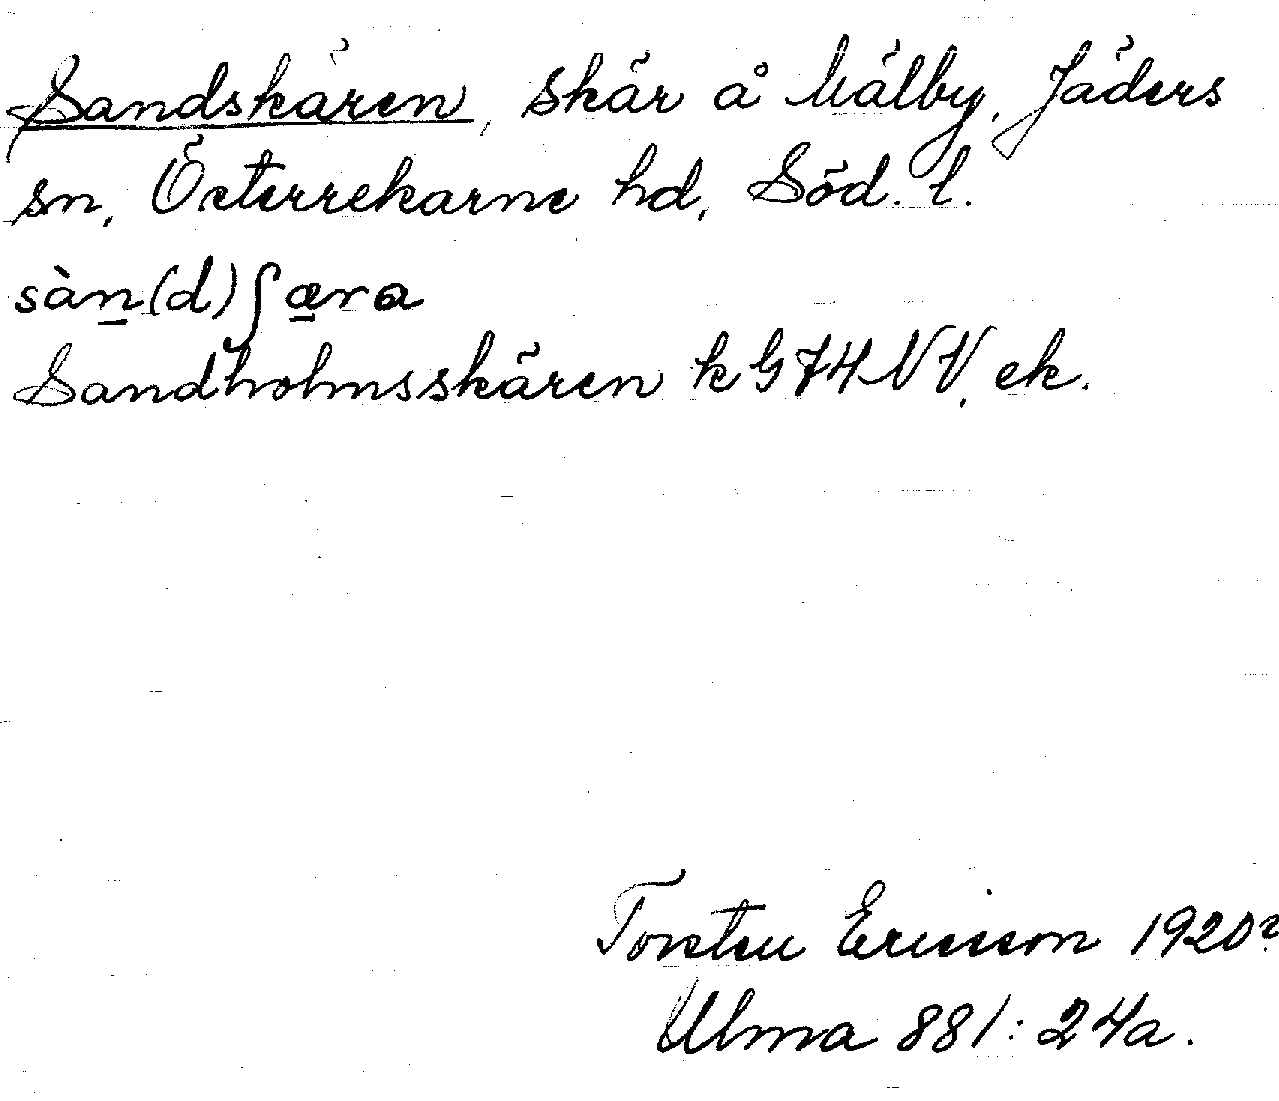 Sandskären, skär å Mälby, Jäders
sn, Österrekarne hd, Söd. l.
sàn(d)ʃæra
Sandholmsskären k G74NV, ek.
Torsten Ericsson 1920?
Ulma 881:24a.